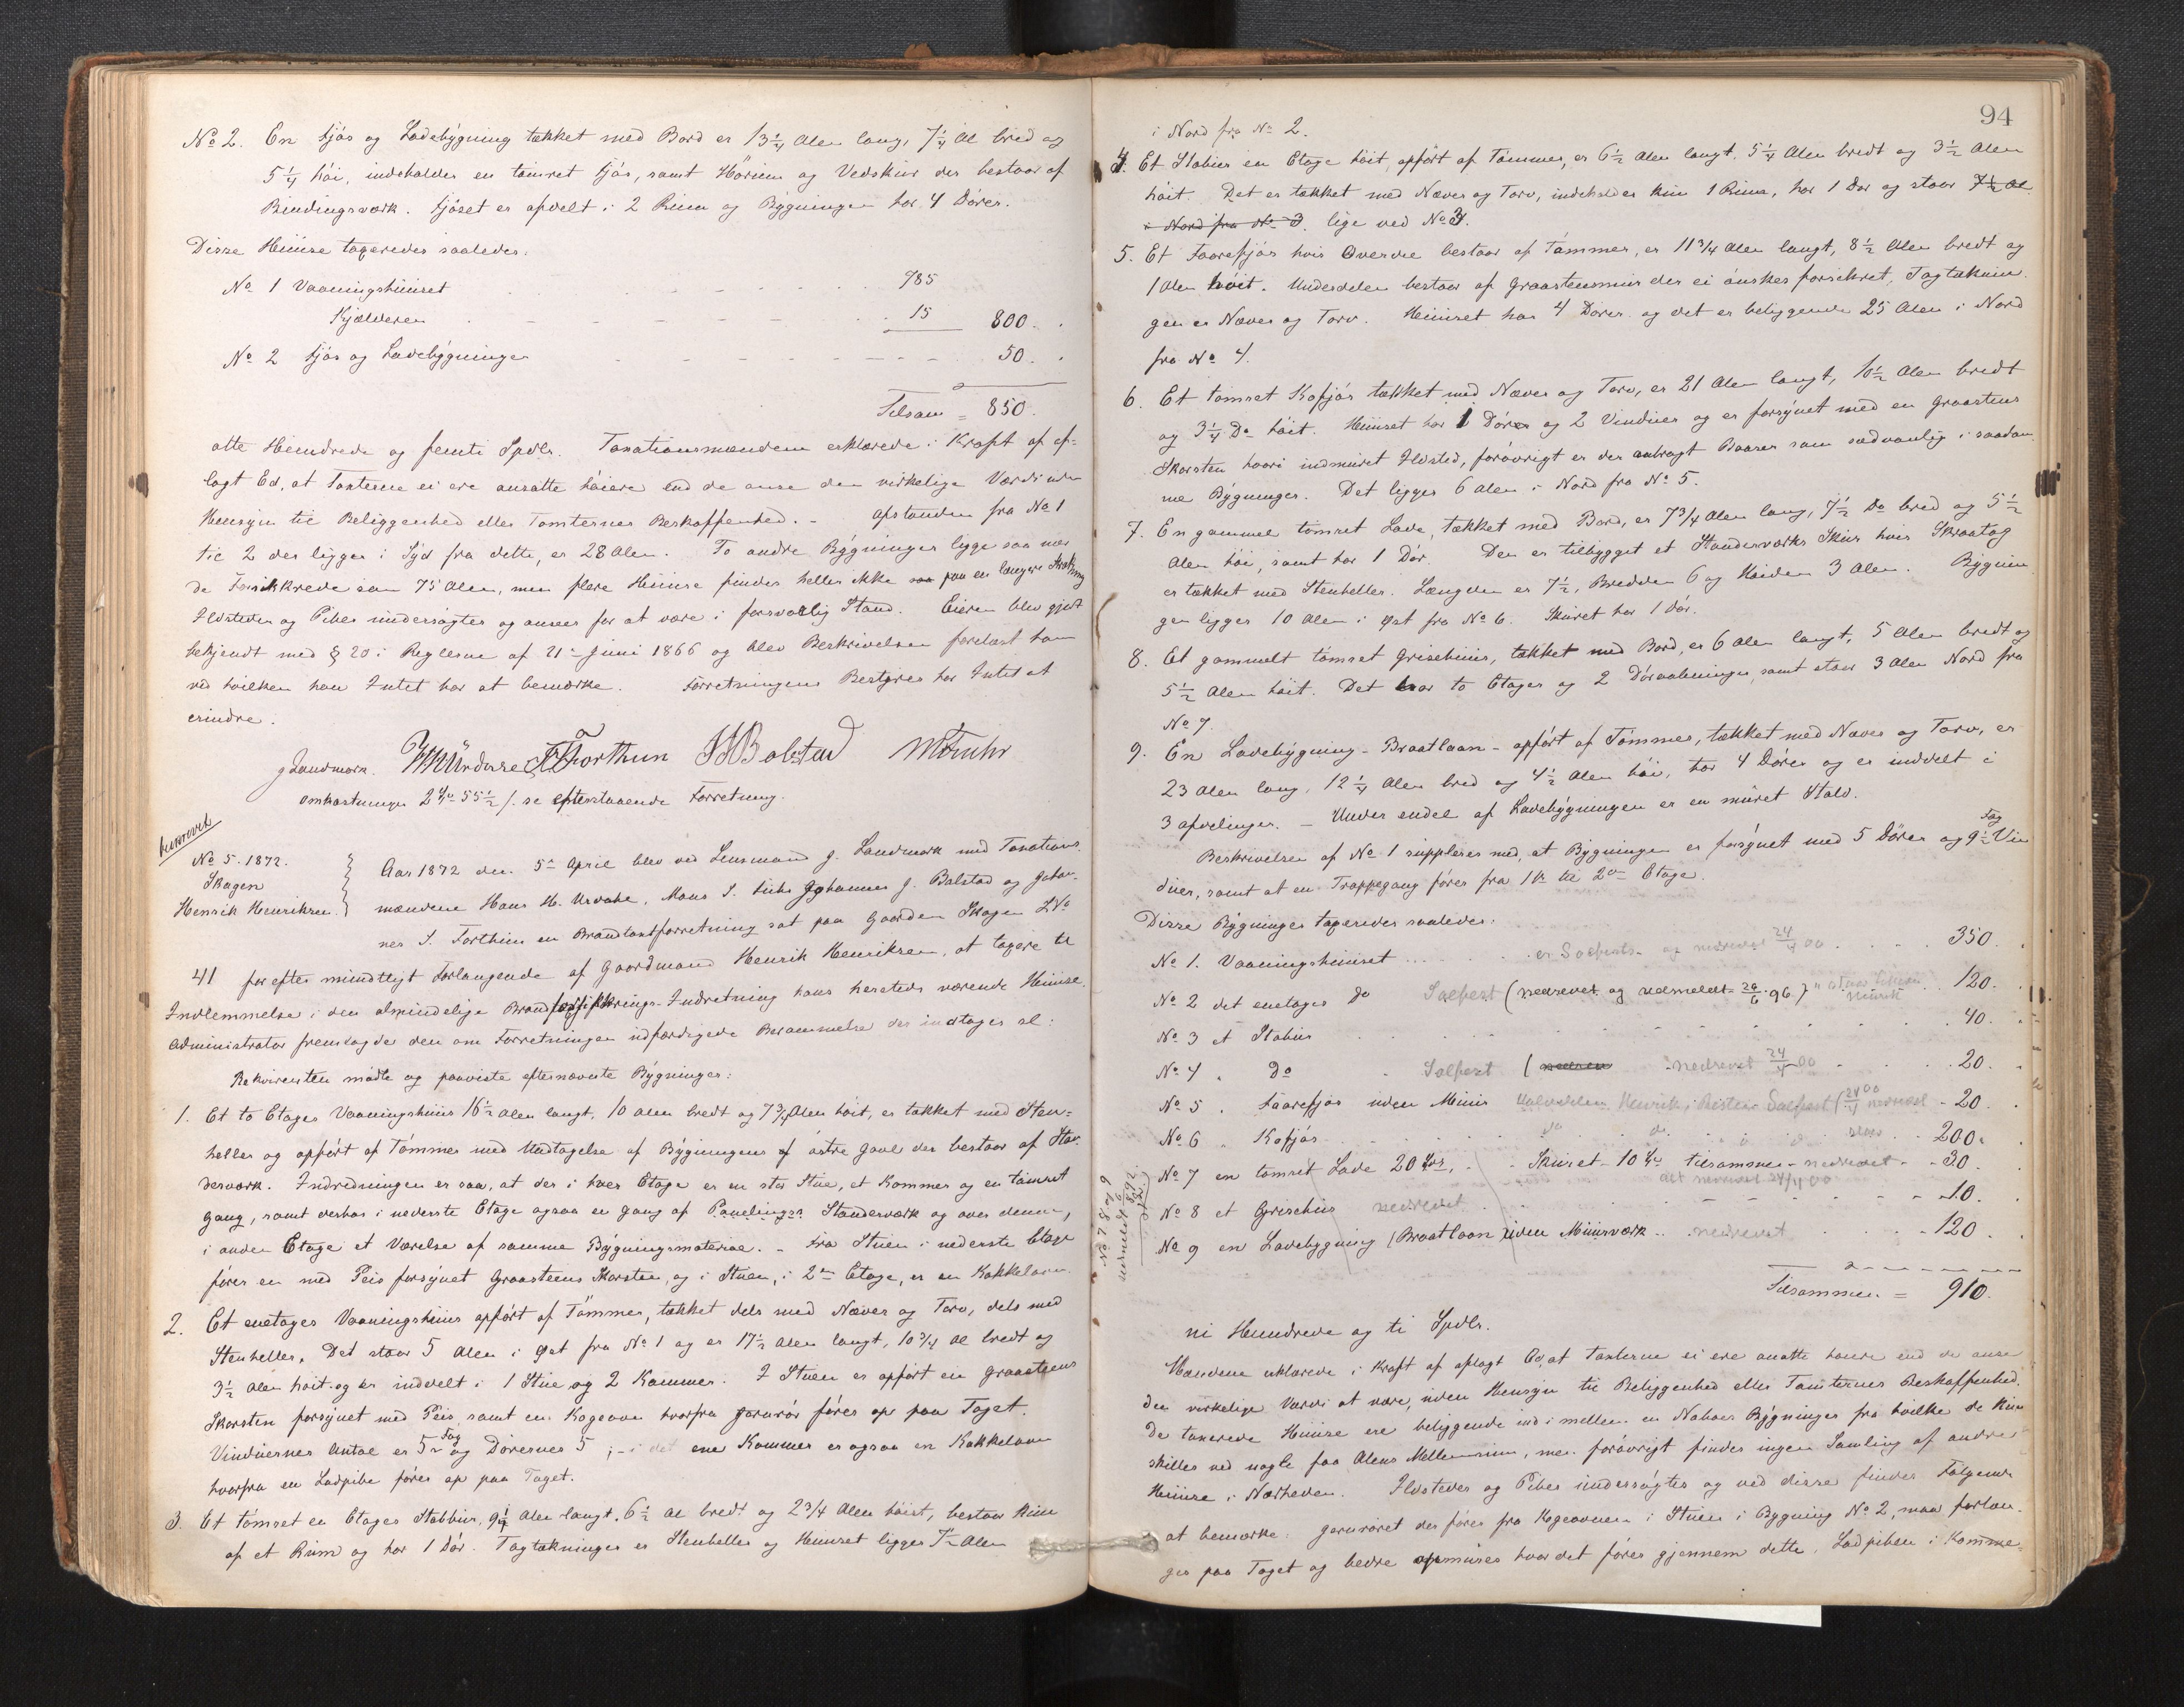 No 2. En fjös og Ladebÿgning tækket med Bord er 13 1/4 Alen lang, 7 1/4 Al bred og
5 1/4 höi, indeholder en tömret fjös, samt Hörum og Vedskur der bestaar af
Bindingsværk. Fjöset er afdelt i 2 Rum og Bÿgningen har 4 Dörer.
Disse Huuse taxeredes saaledes:
No 1 Vaaningshuuset 785
Kjælderen 15 800.
No 2 fjös og Ladebÿgningen 50.
Tilsam = 850.
otte Hundrede og femti Spdlr. Taxationsmændene erklærede i Kraft af af-
lagt Ed, at Taxterne ei ere ansatte höiere end de anse den virkelige Værdi uden
Hensyn til Beliggenhed eller Tomternes Beskaffenhed. - Afstanden fra No 1
til 2 der ligger i Syd fra dette, er 28 Alen. To andre Bÿgninger ligge saa nær
de Forsikkrede som 75 Alen, men flere Huuse findes heller ikke paa en længere Strækning
Ildsteder og Piber undersögtes og ansees for at være i forsvarlig Stand. Eieren blev gjort
bekjendt med § 20 i Reglerne af 21de Juni 1866 og blev Beskrivelsen forelæst ham
ved hvilken han Intet har at bemærke. Forretningens Bestyrer har Intet at
erindre.
J Landmark. HHUrdahl JJForthun JJBolstad MSFuhr
Omkostninger 2 55 1/2 /. se efterstaaende Forretning.
No 5. 1872.
Skagen
Henrik Henriksen.
Aar 1872 den 5te April blev ved Lensmand J. Landmark med Taxations
mændene Hans H. Urdahl, Mons S. Fuhr Johannes J. Bolstad og Johan-
nes J. Forthun en Brandtaxtforretning sat paa Gaarden Skagen LNo
41 for efter mindtligt Forlangende af Gaardmand Henrik Henriksen, at taxere til
Indlemmelse i den almindelige Brandforsikkrings-Indretning hans hersteds værende Huuse.
Administrator fremlagde den om Forretningen udfærdigede Berammelse der indtages sl:
Rekvirenten mödte og paaviste efternævnte Bÿgninger:
1. Et to Etages Vaaningshuus 16 1/2 Alen langt, 10 alen bredt og 7 3/4 Alen höit, er tækket med Sten-
heller og opfört af Tömmer med Undtagelse af Bÿgningens östre Gavl der bestaar af Stan-
derværk. Indredningen er saa, at der i hver Etage er en stor Stue, et Kammer og en tömret
Gang, samt derhos i nederste Etage ogsaa en Gang af Panelinger Standerværk og over denne,
i anden Etage et Værelse af samme Bÿgningsmateriale. - Fra Stuen i nederste Etage
förer en med Peis forsÿnet Graasteens Skorsten, og i Stuen, i 2den Etage, er en Kakkelovn.
2. Et enetages Vaaningshuus opfört af Tömmer, tækket dels med Næver og Torv, dels med
Stenheller. Det staar 5 Alen i Öst fra No 1 og er 17 1/2 Alen langt, 10 3/4 Al bredt og
3 1/2 Alen höit og er inddelt i 1 Stue og 2 Kammer. I Stuen er opfört en Graasteens
Skorsten forsÿnet med Peis, samt en Kogeovn hvorfra Jernrör förer op paa Taget.
Vinduernes Antal er 5 Fag og Dörernes 5; - i det ene Kammer er ogsaa en Kakkelovn
hvorfra en Ladpibe förer op paa Taget.
3. Et tömret en Etages Stabbur, 9 1/4 Alen langt, 6 1/2 Al bredt og 2 3/4 Alen höist, bestaar kun
af et Rum og har 1 Dör. Tagtækningen er Stenheller og Huuset ligger 7 Alen
94
i Nord fra No 2.
4. Et Stabur en Etage höit, opfört af Tömmer, er 6 1/2 Alen langt, 5 1/4 Alen bredt og 3 1/2 Alen
höit. Det er tækket med Næver og Torv, indeholder kun 1 Rum, har 1 Dör og staar 7 1/2 Al
i Nord fra No 3. lige ved No 3.
5. Et Faarefjös hvis Överdel bestaar af Tömmer, er 11 3/4 Alen langt, 8 1/2 Alen bredt og
1 Alen höit. Underdelen bestaar af Graasteensmuur der ei önskes forsikret, Tagtæknin-
gen er Næver og Torv. Huuset har 4 Dörer og det er beliggende 25 Alen i Nord
fra No 4.
6. Et tömret Kofjös tækket med Næver og Torv, er 21 Alen langt, 10 1/2 Alen bredt
og 3 1/4 Do höit. Huuset har 1 Dörer og 2 Vinduer og er forsÿnet med en Graastens
Skorsten hvori indmuret Ildsted, foróvrigt er der anbragt Baaser som sædvanlig i saadan-
ne Bÿgninger. Det ligger 6 Alen i Nord fra No 5.
7. En gammel tömret Lade, tækket med Bord, er 7 3/4 Alen lang, 7 1/2 Do bred og 5 1/2
Alen höi, samt har 1 Dör. Den er tilbÿgget et Standerværks Skur hvis Skraatag
er tækket med Stenheller. Længden er 7 1/2, Bredden 6 og Höiden 3 Alen. Bÿgnin-
gen ligger 10 Alen i Öst fra No 6. Skuret har 1 Dör.
8. Et gammelt tömret Grisehuus, tækket med Bord, er 6 Alen langt, 5 Alen bredt og
5 1/2 Alen höit. Det har to Etager og 2 Döraabninger, samt staar 3 Alen Nord fra
No 7.
9. En Ladebÿgning - Braatlaan - opfört af Tömmer, tækket med Næver og Torv, er
23 Alen lang, 12 1/4 Alen bred og 4 1/2 Alen höi, har 4 Dörer og er inddelt i
3 afdelinger. - Under endel af Ladebÿgningen er en muret Stald.
Beskrivelsen af No 1 suppleres med, at Bÿgningen er forsÿnet med 5 Dörer og 9 1/2 Fag Vin
duer, samt at en Trappegang förer fra 1ste til 2den Etage.
Disse Bÿgninger taxeredes saaledes:
No 1. Vaaningshuuset er Solfests og nedrevet 24/4 00 350.
No 2 det enetages do Solfest (nedrevet og udmeldt 26/6 96.) 120.
No 3 et Stabur 40.
No 4 " Do Solfest ( nedrevet 24/4 00 20.
No 5 . Faarefjös uden Muur Halvdelen Henrik, Resten Solfest (24/4 00 nedrevet 20.
No 6 " Kofjös do do 200.
No 7 en tömret Lade 20 Spd, Skuret 10 Spd tilsammen nedrevet 30.
det nedrevet 24/4 00
No 8 et Grisehus nedrevet 10.
No 9 en Ladebygning (Braatlaan) uden Muurværk nedrevet 120.
No 7 8 og 9
udmeldt 1892
Tilsammen = 910.
ni Hundrede og ti Spdlr.
Mændene erklærede i Kraft af aflagt Ed, at Taxterne ei ere ansatte höiere end de anse
den virkelige Værdi at være, uden Hensyn til Beliggenhed eller Tomternes Beskaffenhed.
De taxerede Huuse ere beliggende ind i mellem en Naboes Bÿgninger fra hvilke de kun
skilles ved nogle faa Alens Mellemrum, men foróvrigt findes ingen Samling af andre
Huuse i Nærheden. Ildsteder og Piber undersögtes og ved disse findes Fölgende
at bemærke: Jernröret der förer fra Kogeovnen i Stuen i Bygning No 2, maa forlæn-
ges paa Taget og bedre opmures hvor det förer gjennem dette. Ladpiben i Kamme-